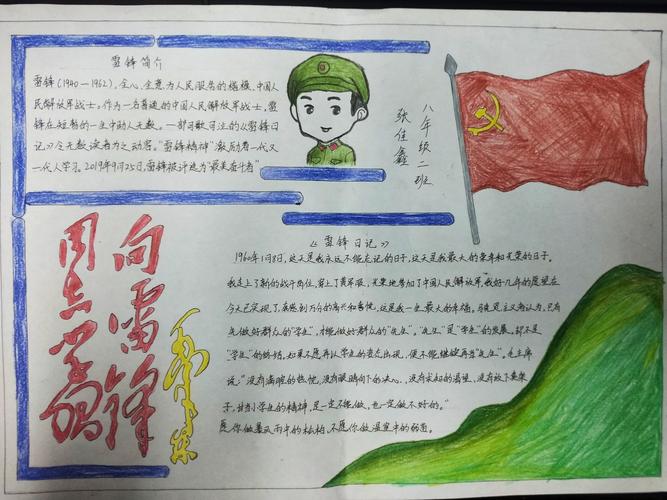 雷锋简介
雷锋(1940—1962),全心全意为人民服务的楷模、中国人
民解放军战士。作为一名普通的中国人民解放军战士,雷
锋在短暂的一生中助人无数。一部可歌可泣的《雷锋日
记》令无数读者为之动容。"雷锋精神"激励着一代又
一代人学习。2019年9月25日,雷锋被评选为"最美奋斗者"
八年级二班
张佳鑫
向雷锋
同志学习
毛泽东
《雷锋日记》
1960年1月8日,这天是我永远不能忘记的日子,这天是我最大的荣幸和光荣的日子。
我走上了新的战斗岗位,穿上了黄军服,光荣地参加了中国人民解放军,我好几年的愿望在
今天已实现了,真感到万分的高兴和喜悦,这是我一生最大的幸福。马克思主义者认为,只有
先做好群众的"学生",才能做好群众的"先生"。"先生"是"学生"的发展,却不是
"学生"的终结。如果不愿再以学生的姿态出现,便不能继续再当"先生"。毛主席
说:"没有满腔的热忱,没有眼睛向下的决心,没有求知的渴望,没有放下臭架
子,甘当小学生的精神,是一定不能做,也一定做不好的。"
愿你做暴风雨中的松柏,不愿你做温室中的弱苗。